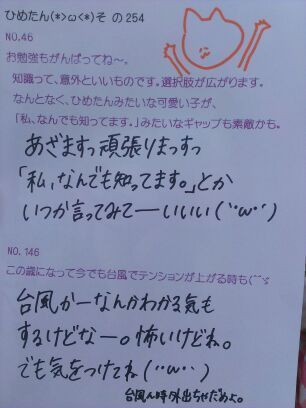 ひめたん(*>ω<*)そ の254
NO.46
お勉強もがんばってね～。
知識って、意外といいものです。選択肢が広がります。
なんとなく、ひめたんみたいな可愛い子が、
「私、なんでも知ってます。」みたいなギャップも素敵かも。
あざますっ頑張りまっすっ
「私、なんでも知ってます。」とか
いつか言ってみてーいいい(¨・ω・¨)
NO. 146
この歳になって今でも台風でテンションが上がる時も(^^ゞ
台風かーなんかわかる気も
するけどなー。怖いけどね。
でも気をつけてね(¨・ω・¨)
台風ん時外出ちゃだめよ。